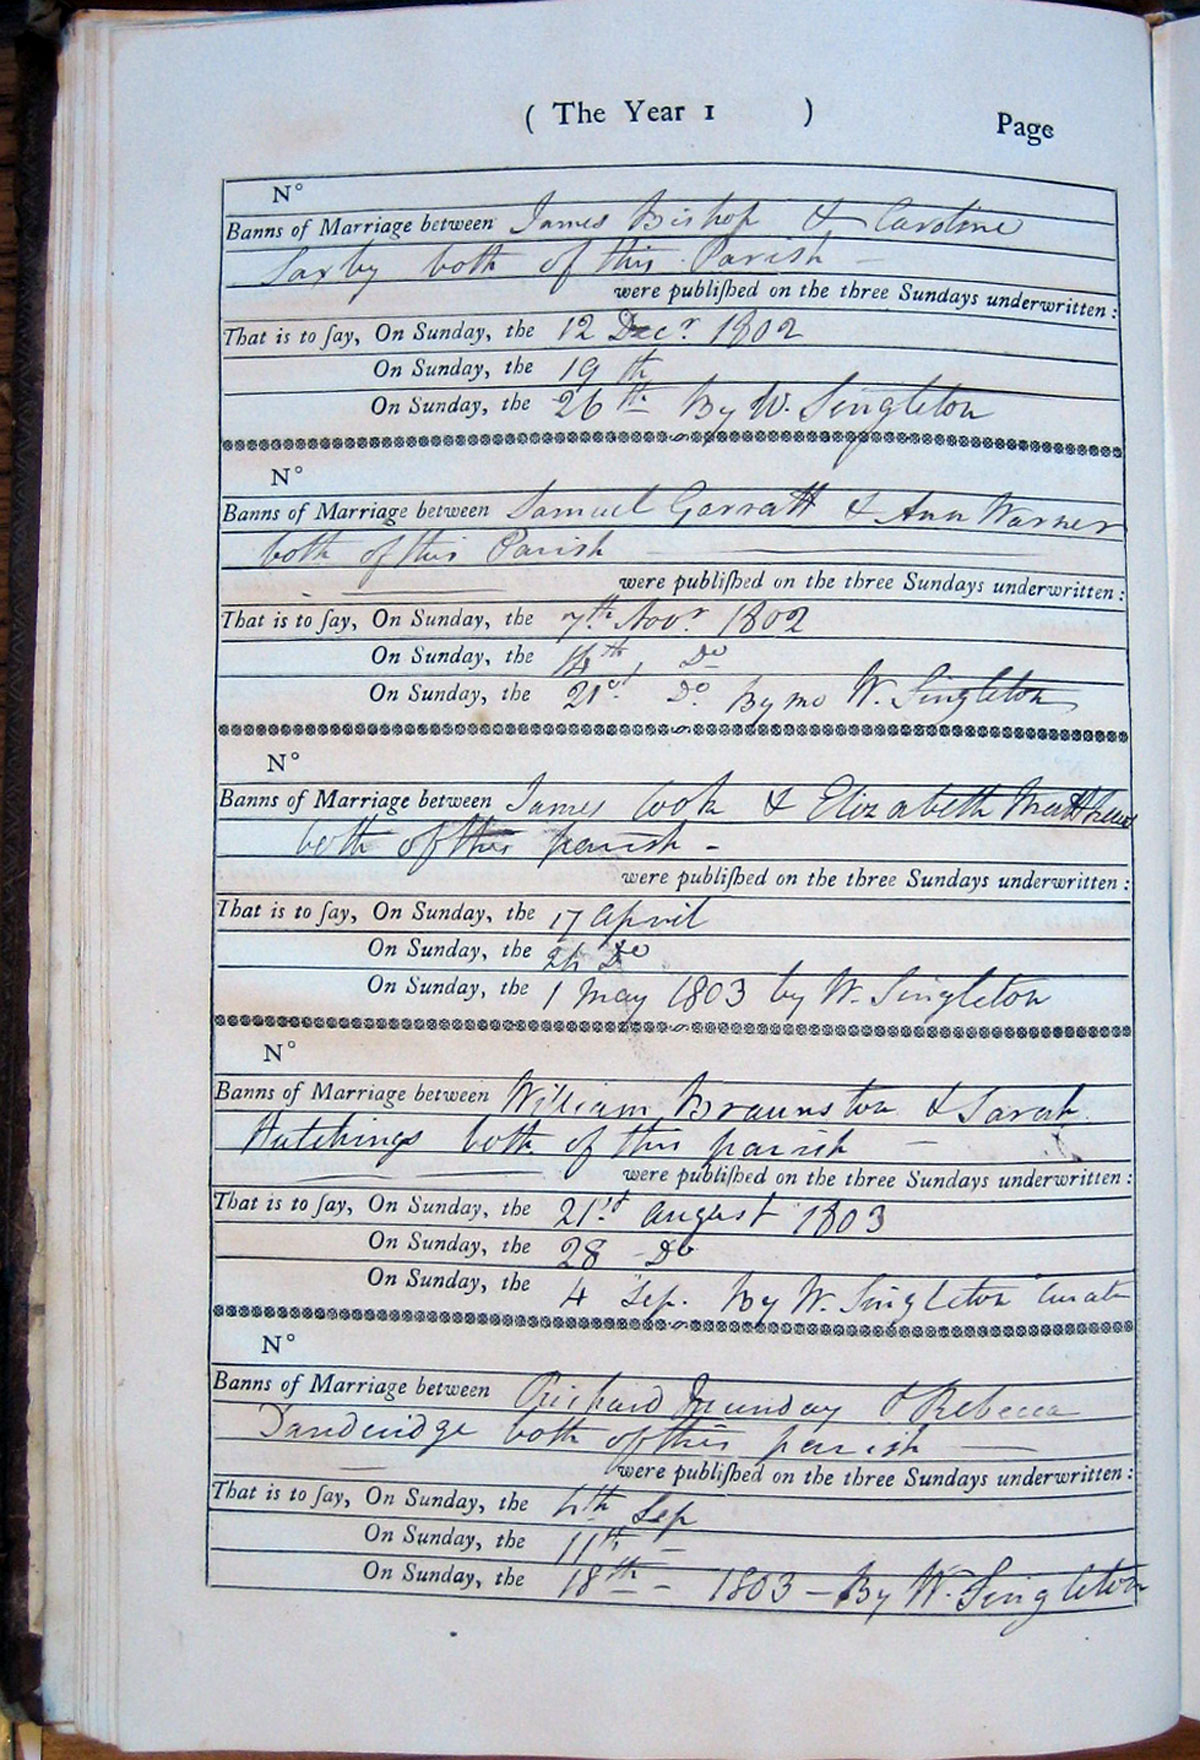 ( The Year 1 ) Page
N°
Banns of Marriage between James Bishop & Caroline
Saxby both of this Parish —
were publiſhed on the three Sundays underwritten:
That is to ſay, On Sunday, the 12 Decr. 1802
On Sunday, the 19 th
On Sunday, the 26 th By W. Singleton
N°
Banns of Marriage between Samuel Garratt & Ann Warner
both of this Parish
were publiſhed on the three Sundays underwritten:
That is to ſay, On Sunday, the 7th Novr. 1802
On Sunday, the 14th, Do
On Sunday, the 21st Do. By me W. Singleton
N°
Banns of Marriage between James Cook & Elizabeth Matthews
both of this parish -
were publiſhed on the three Sundays underwritten:
That is to ſay, On Sunday, the 17 April
On Sunday, the 24 Do
On Sunday, the 1 May 1803 by W. Singleton
N°
Banns of Marriage between William Braunston & Sarah
Hutchings both of this parish —
were publiſhed on the three Sundays underwritten:
That is to ſay, On Sunday, the 21st August 1803
On Sunday, the 28 - Do
On Sunday, the 4 Sep. By W. Singleton Curate
N°
Banns of Marriage between Richard Munday & Rebecca
Dandridge both of this parish —
were publiſhed on the three Sundays underwritten:
That is to ſay, On Sunday, the 4th Sep
On Sunday, the 11th -
On Sunday, the 18th - 1803 - By W. Singleton